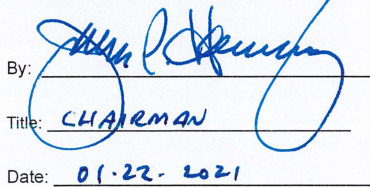 By:
Title: CHAIRMAN
Date: 01.22.2021